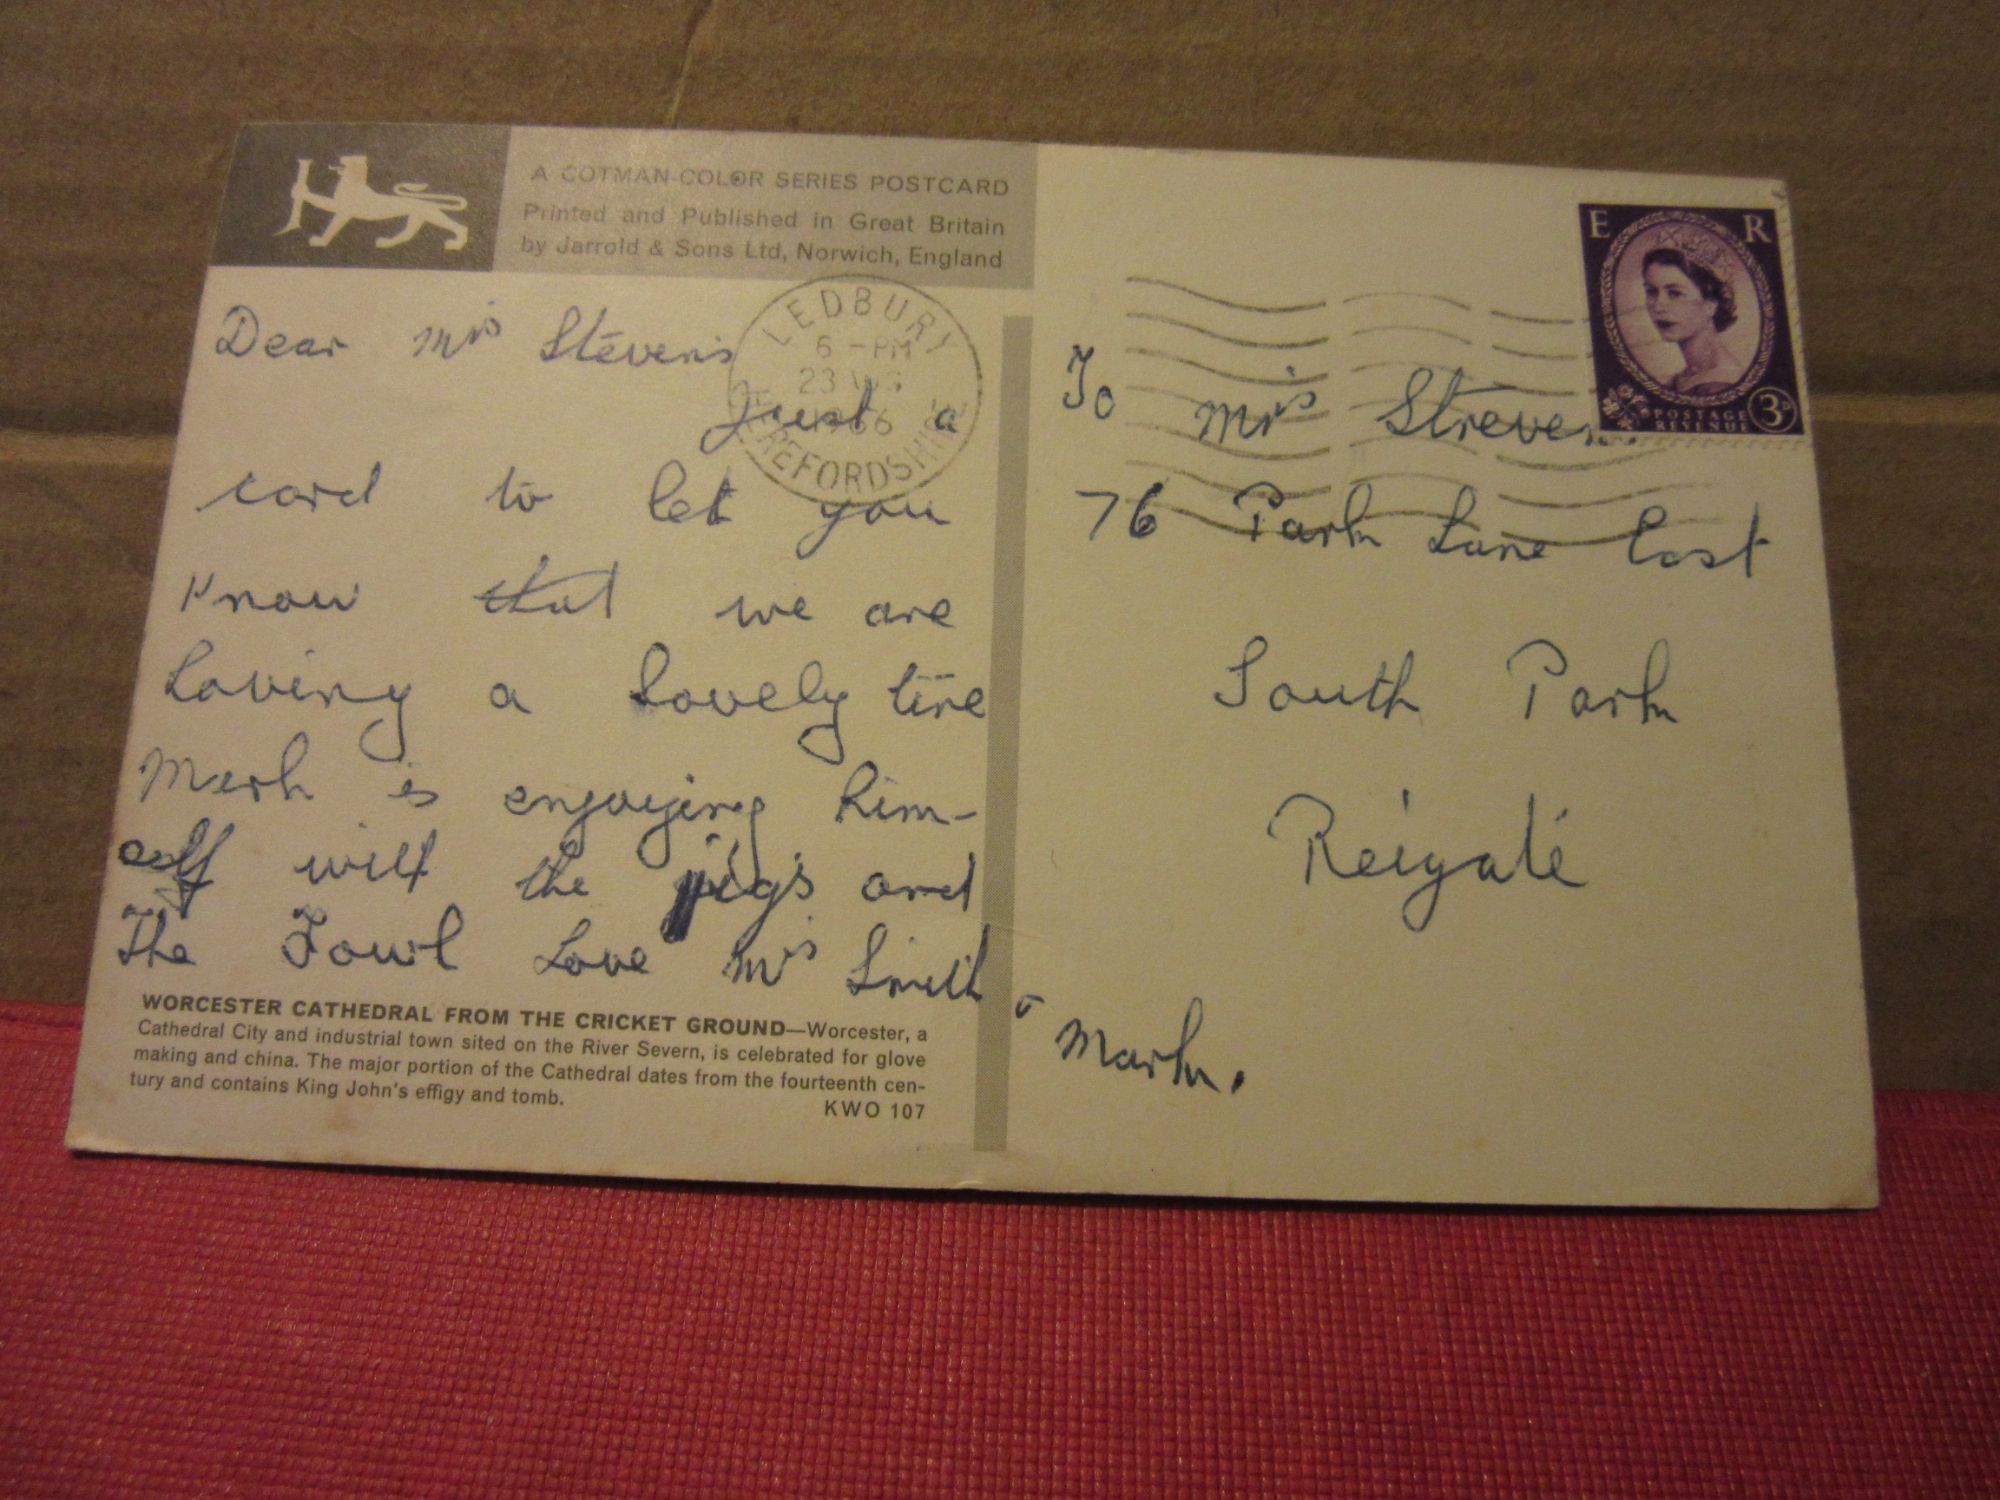 A COTMAN-COLOR SERIES POSTCARD
Printed and Published in Great Britain
by Jarrold & Sons Ltd, Norwich, England
LEDBURY
6 - PM
23 AUG
1966
HEREFORDSHIRE
Dear Mrs Stevens
just a
card to let you
know that we are
having a lovely time
Mark is enjoying him-
self with the pigs and
the Fowl Love Mrs Smith
& Mark.
WORCESTER CATHEDRAL FROM THE CRICKET GROUND—Worcester, a
Cathedral City and industrial town sited on the River Severn, is celebrated for glove
making and china. The major portion of the Cathedral dates from the fourteenth cen-
tury and contains King John's effigy and tomb.
KWO 107
E R
POSTAGE
REVENUE
3D
To Mrs Streven
76 Park Lane East
South Park
Reigate